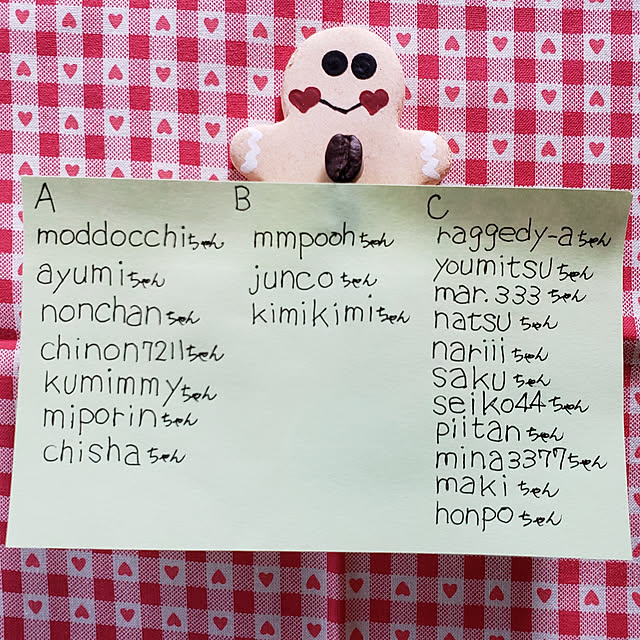 A
moddocchiちゃん
ayumiちゃん
nonchanちゃん
chinon7211ちゃん
kumimmyちゃん
miporinちゃん
chishaちゃん
B
mmpoohちゃん
juncoちゃん
kimikimiちゃん
C
raggedy-aちゃん
youmitsuちゃん
mar.333ちゃん
natsuちゃん
nariiiちゃん
sakuちゃん
seiko44ちゃん
piitanちゃん
mina3377ちゃん
makiちゃん
honpoちゃん